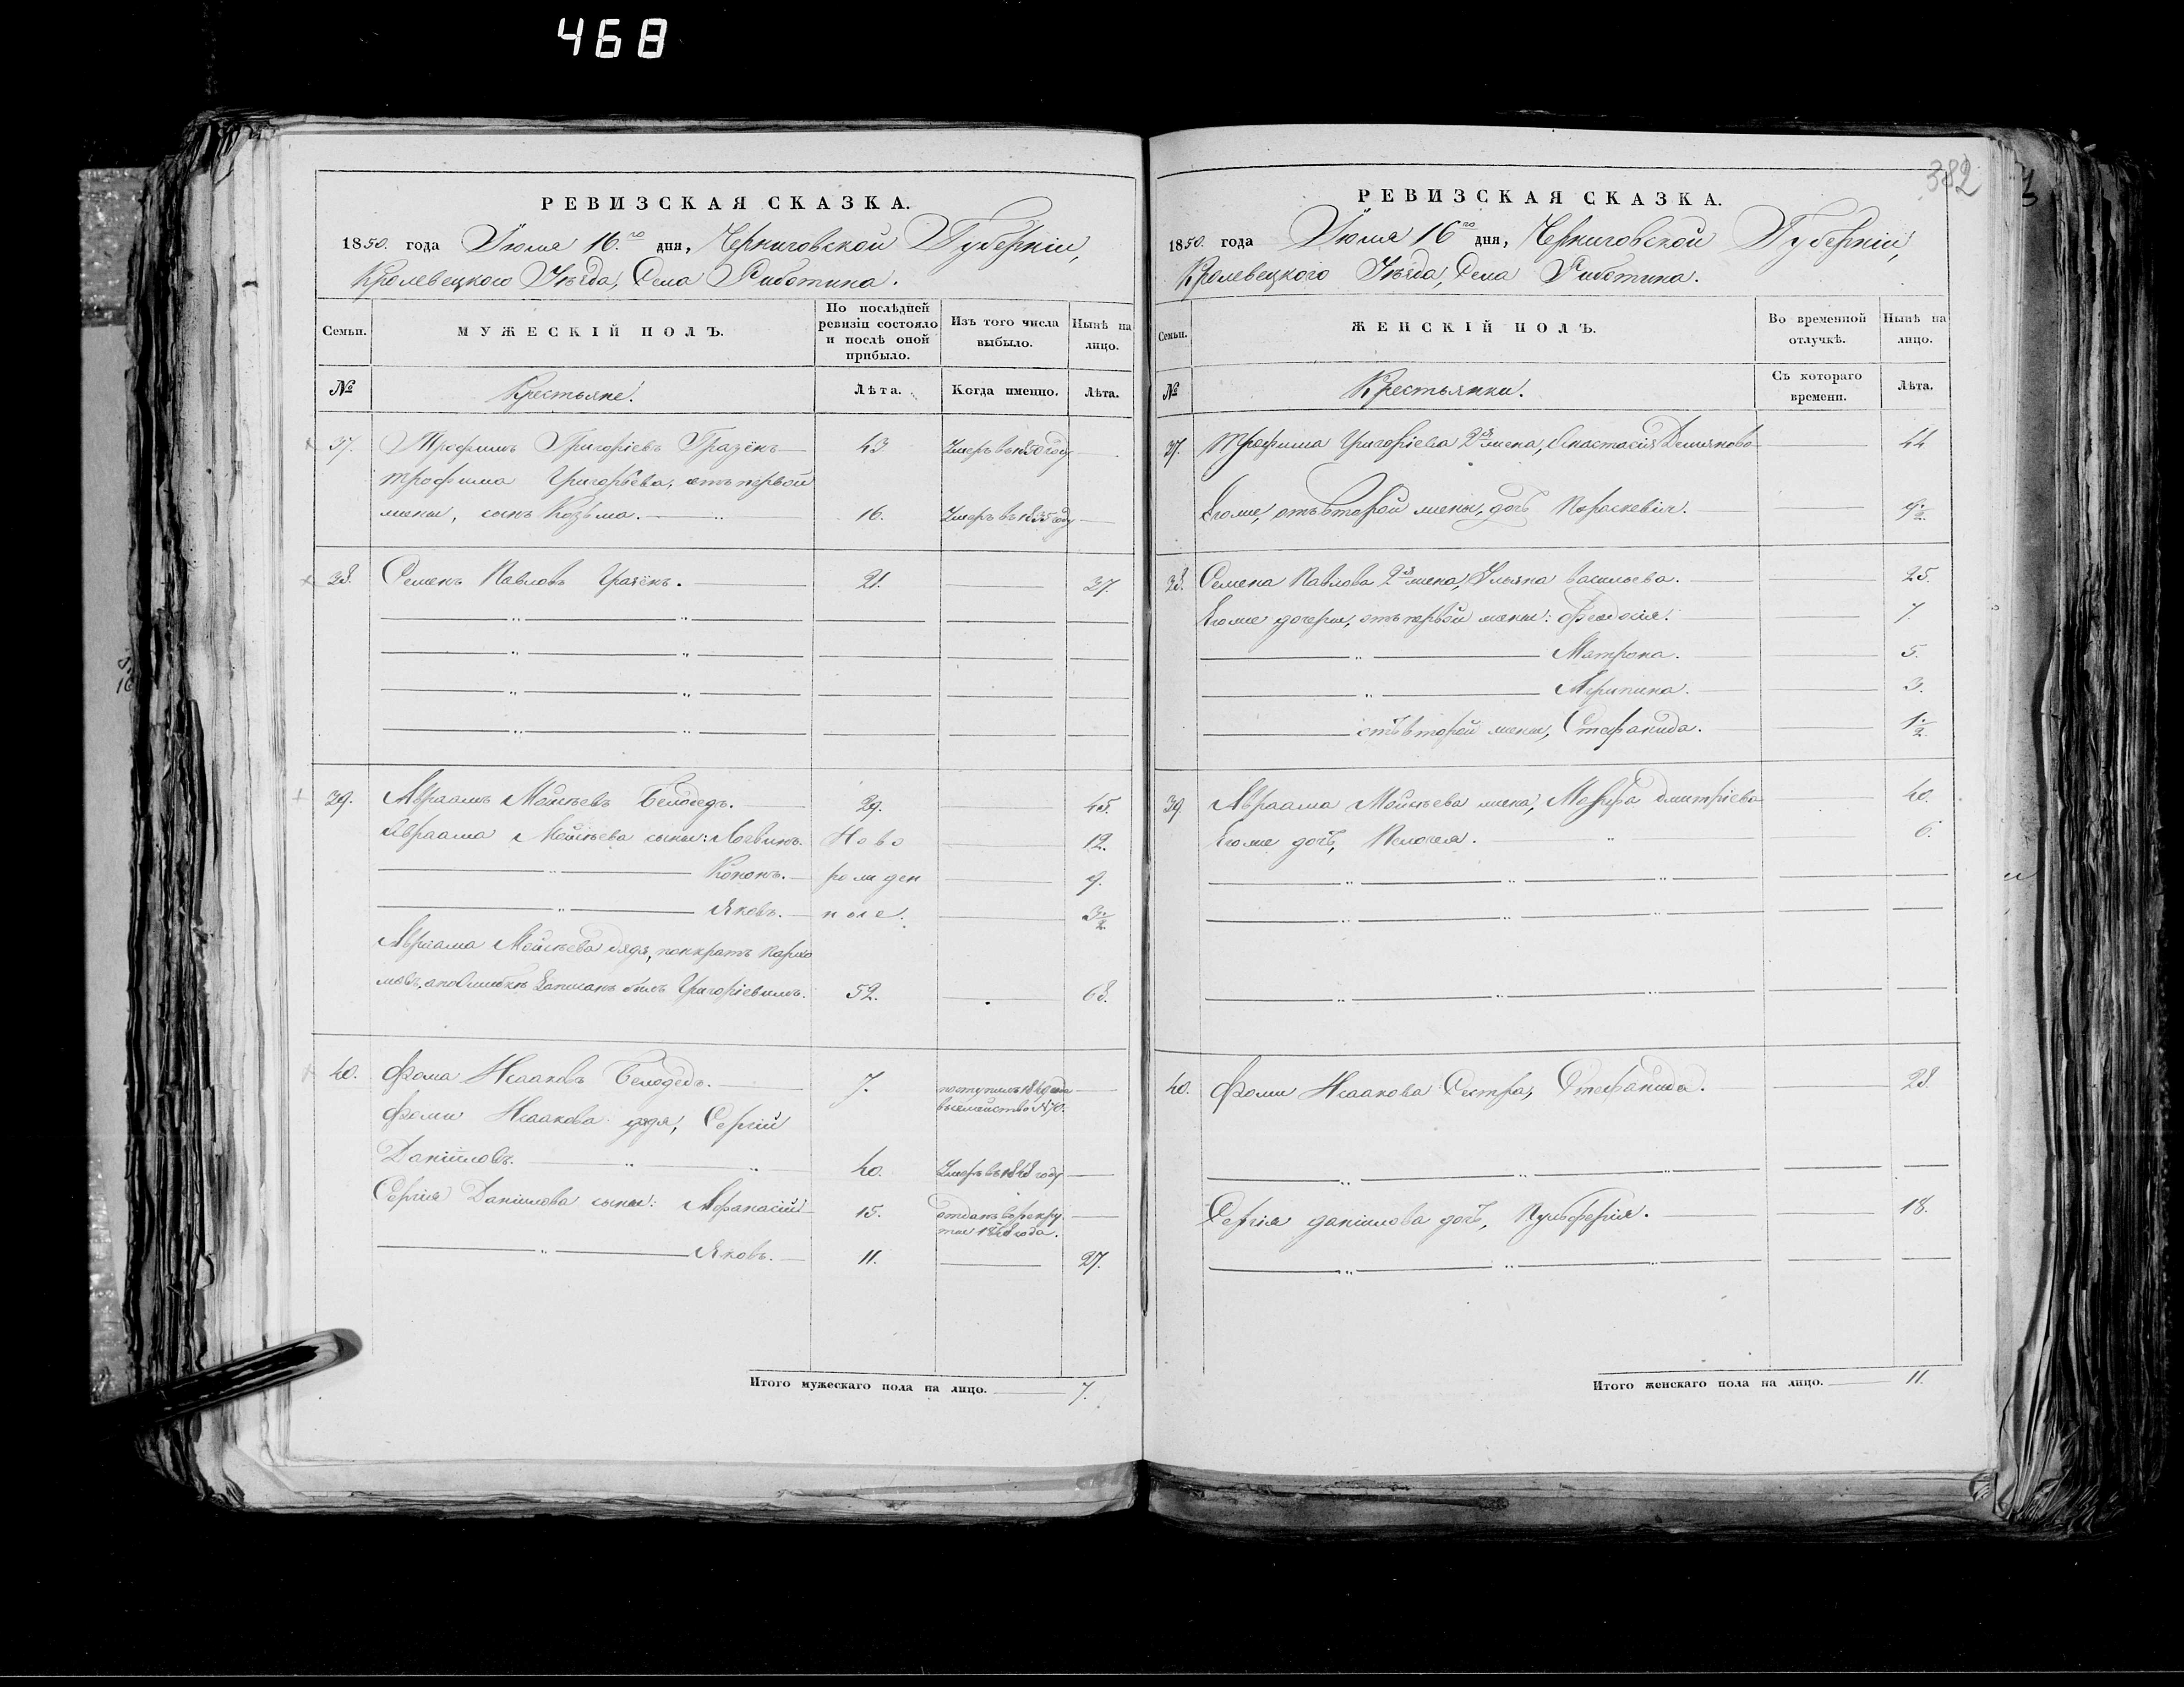 468
РЕВИЗСКАЯ СКАЗКА.
1850. года Іюля 16.го дня, Черниговской Губерніи,
Кролевецкого Уѣзда, Села Риботина.
Семьи.
МУЖЕСКІЙ ПОЛЪ.
По послѣдней ревизіи состояло и послѣ оной прибыло.
Изъ того числа выбыло.
Нынѣ на лицо.
№ Крестьяне. Лѣта. Когда именно. Лѣта.
37. Трофимъ Григоріевъ 43. Умеръ въ 1850 году
Трофима Григорьева, отъ первой
жены, сынъ Козьма. 16. Умеръ въ 1835 году
38. Семенъ Павловъ 21. 37.
39. Авраамъ Мойсѣевъ Белодедъ. 29. 45.
Авраама Мойсѣева сыны: Логвинъ. Ново 12.
Кононъ. рожден 9.
Яковъ. ные. 3 1/2
Авраама Мойсѣева дядя, Панкратъ Пархо
мовъ, а по ошибкѣ записанъ былъ Григоріевымъ. 52. 68.
40. Фома Исааковъ Белодедъ. 7. поступилъ 1840 года
въ семейство №70.
Фомы Исаакова дядя, Сергій
Даніиловъ. 40. Умеръ въ 1848 году
Сергія Даніилова сыны: Афанасій 15. отданъ въ рекру
ты 1848 года.
Яковъ. 11. 27.
Итого мужескаго пола на лицо. 7.
382
РЕВИЗСКАЯ СКАЗКА.
1850. года Іюля 16го дня, Черниговской Губерніи,
Кролевецкого Уѣзда, Села Риботина.
Семьи.
ЖЕНСКІЙ ПОЛЪ.
Во временной отлучкѣ.
Нынѣ на лицо.
№ Крестьянки. Съ котораго времени. Лѣта.
37. Трофима Григоріева 2я жена, Анастасія Демянова 44
Егоже, отъ второй жены, дочь Параскевія. 9 1/2
38. Семена Павлова 2я жена, Ульяна Васильева. 25.
Егоже дочери, отъ первой жены: Феодосія. 7.
Матрона. 5.
Агрипина. 3.
отъ второй жены, Стефанида. 1 1/2
39 Авраама Мойсѣева жена, Марфа Дмитріева 40.
Егоже дочь, Пелагея. 6.
40. Фомы Исаакова Сестра, Стефанида. 28.
Сергія Даніилова дочь, Пульферія. 18.
Итого женскаго пола на лицо. 11.